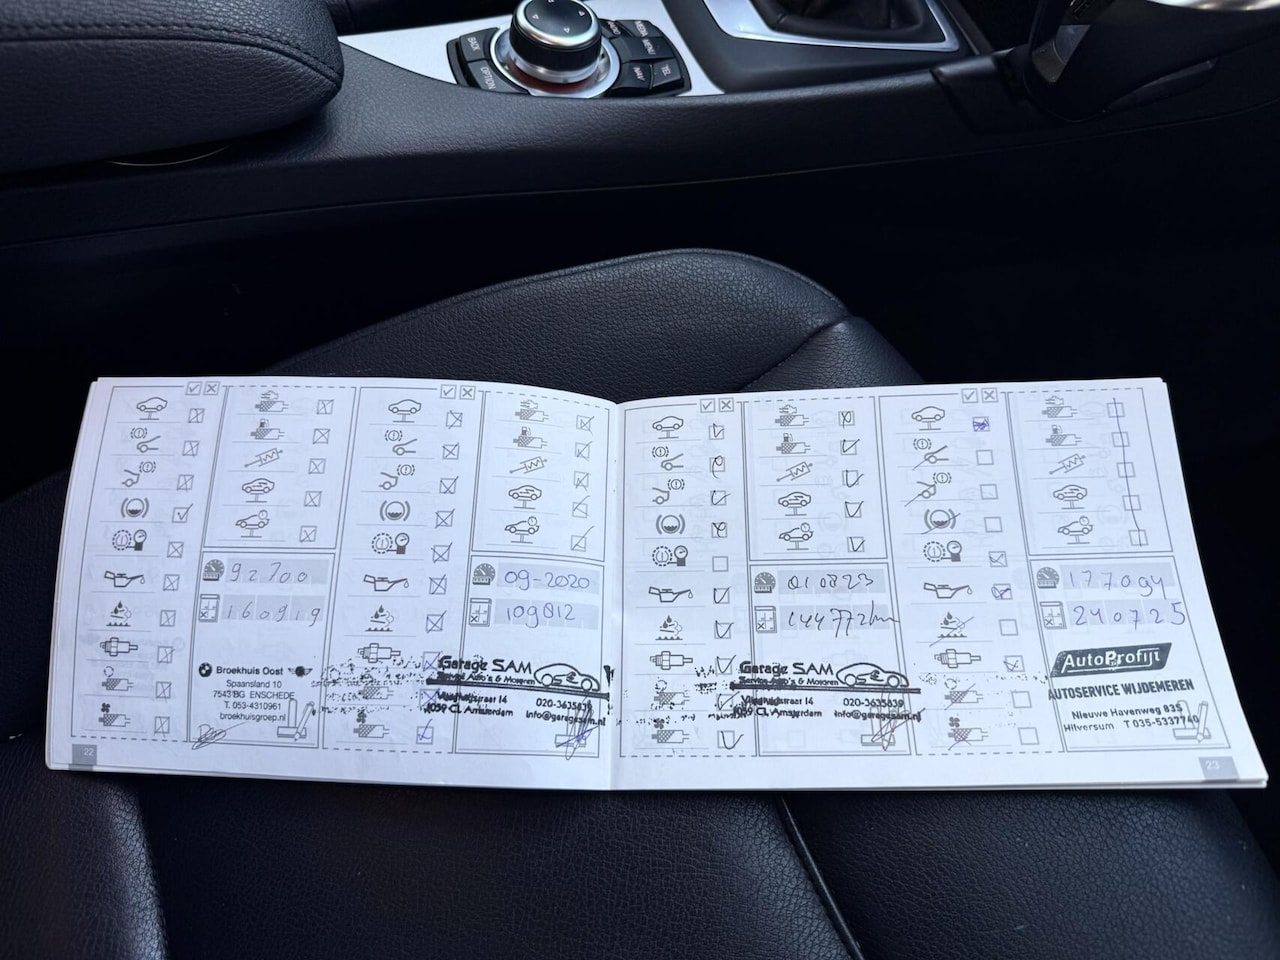 BACK
OPTION
MENU
NAV
TEL
92700
160919
Broekhuis Oost
Spaansland 10
7543 BG ENSCHEDE
T. 053-4310961
broekhuisgroep.nl
22
09-2020
109812
Garage SAM
Service Auto's & Motoren
020-3635839
1059 CL Amsterdam
info@garagesam.nl
010823
144772km
Garage SAM
Service Auto's & Motoren
020-3635839
1059 CL Amsterdam
info@garagesam.nl
177094
240725
AutoProfijt
AUTOSERVICE WIJDEMEREN
Nieuwe Havenweg 83S
Hilversum T 035-5337740
23